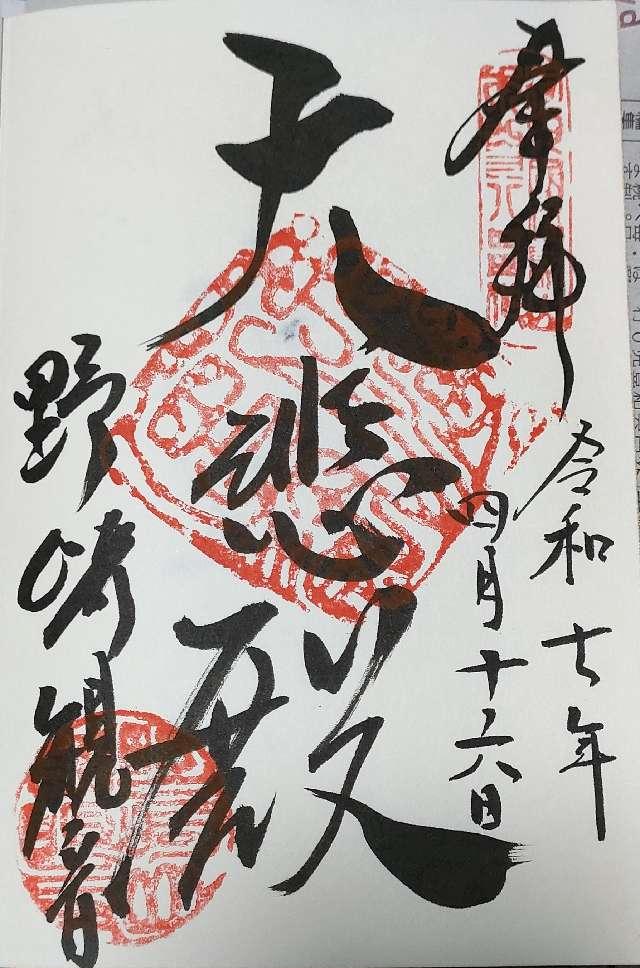 奉拝
令和七年
四月十六日
大悲殿
野崎観音